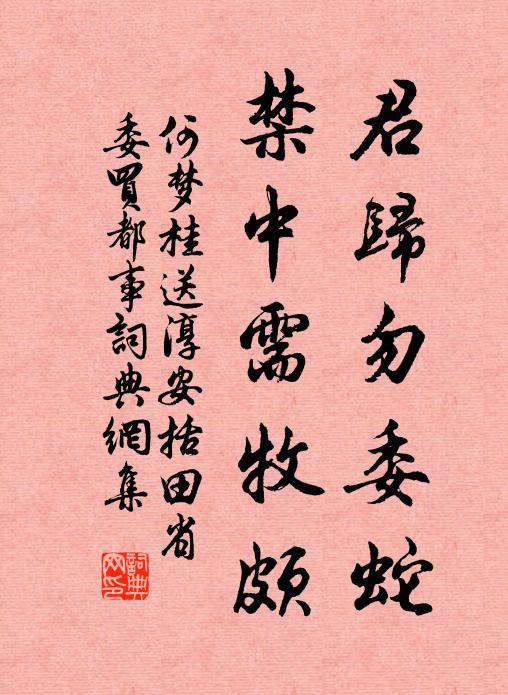 君歸勿委蛇
禁中需牧頗
何梦桂送淳安括田省
委買都事詞典網集
詞典网印